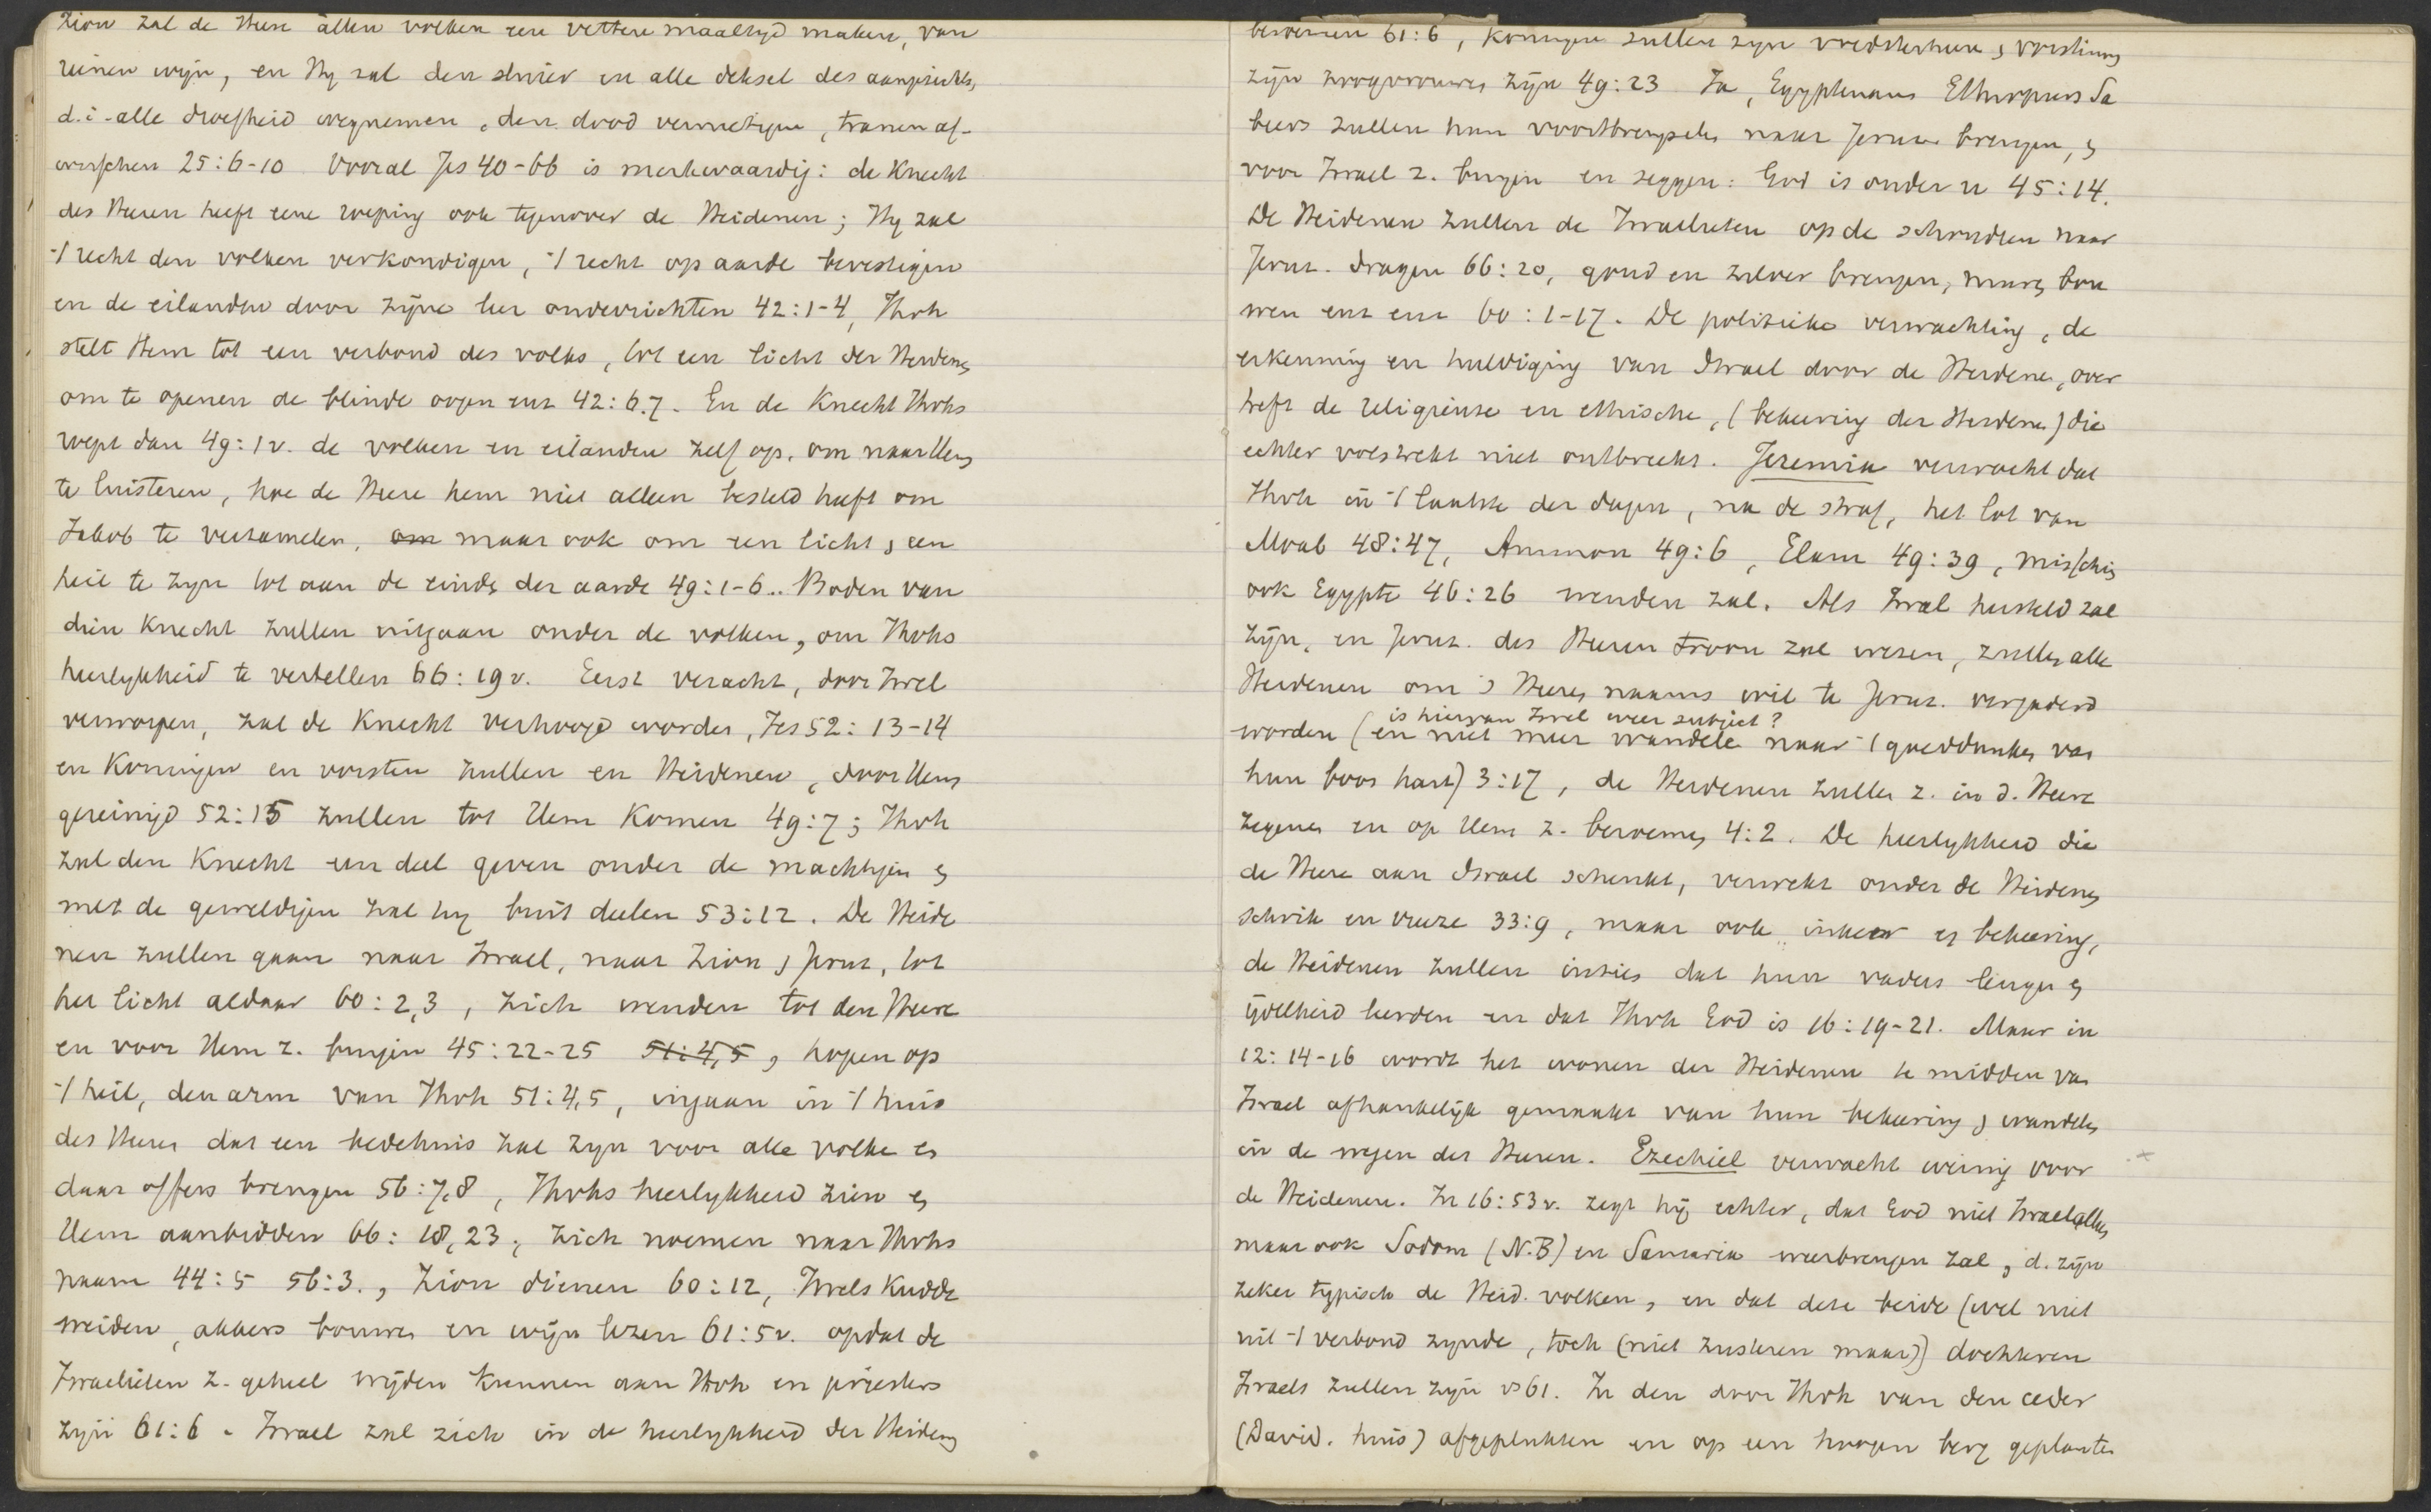 Zion zal de Heere allen volken eene vettere maaltyd maken, van
reinen wijn, en Hy zal den sluier en alle deksel des aangezichts,
d.i. alle droefheid wegnemen, den dood vernietigen, tranen af-
wisschen 25:6-10. Vooral Jes 40-66 is merkwaardig: de Knecht
des Heeren heeft eene roeping ook tegenover de Heidenen; Hy zal
't recht den volken verkondigen, 't recht op aarde bevestigen
en de eilanden door zijne leer onderrichten 42:1-4, Jhvh
stelt Hem tot een verbond des volks, tot een licht der Heidenen
om te openen de blinde oogen enz 42:6.7. En de Knecht Jhvhs
roept dan 49:1v. de volken en eilanden zelf op, om naar Hem
te luisteren, hoe de Heere hem niet alleen besteld heeft om
Jakob te verzamelen, om maar ook om een licht, een
heil te zyn tot aan de einde der aarde 49:1-6.. Boden van
dien Knecht zullen uitgaan onder de volken, om Jhvhs
heerlykheid te vertellen 66:19v. Eerst veracht, door Isrel
verworpen, zal de Knecht verhoogd worden, Jes 52:13-14
en Koningen en vorsten zullen en Heidenen, door Hem
gereinigd 52:15 zullen tot Hem Komen 49:7; Jhvh
zal den Knecht een deel geven onder de machtigen en
met de geweldigen zal hy buit deelen 53:12. De Heide
nen zullen gaan naar Israel, naar Zion, Jeruz, tot
het licht aldaar 60:2,3, zich wenden tot den Heere
en voor Hem z. buigen 45:22-25 51:4,5, hopen op
't heil, den arm van Jhvh 51:4,5, ingaan in 't huis
des Heeren dat een bedehuis zal zyn voor alle volken en
daar offers brengen 56:7,8, Jhvhs heerlykheid zien en
Hem aanbidden 66:18,23, zich noemen naar Jhvhs
naam 44:5 56:3., Zion dienen 60:12, Isrels Kudde
weiden, akkers bouwen en wijn lezen 61:5v. opdat de
Israelieten z. geheel wijden kunnen aan Jhvh en priesters
zyn 61:6. Israel zal zich in de heerlykheid der Heidenen
beroemen 61:6, Koningen zullen zyn voedsterheeren, vorstinnen
zijn zoogvrouwen zijn 49:23 Ja, Egyptenaars Ethiopiers Sa
beers zullen hun voortbrengselen naar Jeruz. brengen, en
voor Israel z. buigen en zeggen: God is onder u 45:14.
De Heidenen zullen de Israelieten op de schouders naar
Jeruz. dragen 66:20, goud en zilver brengen, muren bou
wen enz enz 60:1-17. De politieke verwachting, de
erkenning en huldiging van Israel door de Heidenen, over
treft de religieuse en ethische, (bekeering der Heidenen) die
echter volstrekt niet ontbreekt. Jeremia verwacht dat
Jhvh in 't laatste der dagen, na de straf, het lot van
Moab 48:47, Ammon 49:6, Elam 49:39, misschien
ook Egypte 46:26 wenden zal. Als Isral hersteld zal
zijn, en Jeruz. des Heeren troon zal wezen, zullen alle
Heidenen om 's Heeren naams wil te Jeruz. vergaderd
is hiervan Isrel weer subject?
worden (en niet meer wandelen naar 't goeddunken van
hun boos hart) 3:17, de Heidenen zullen z. in d. Heere
zegenen en op Hem z. beroemen 4:2. De heerlykheid die
de Heere aan Israel schenkt, verwekt onder de Heidenen
schrik en vreeze 33:9, maar ook inkeer en bekeering,
de Heidenen zullen inzien dat hun vaders leugen en
ijdelheid leerden en dat Jhvh God is 16:19-21. Maar in
12:14-16 wordt het wonen der Heidenen te midden van
Israel afhankelijk gemaakt van hun bekeering, wandelen
in de wegen des Heeren. Ezechiel verwacht weinig voor
de Heidenen. In 16:53v. zegt hij echter, dat God niet Israel alleen,
maar ook Sodom (N.B) en Samaria weerbrengen zal, d. zijn
zeker typisch de Heid. volken, en dat deze beide (wel niet
uit 't verbond zynde, toch (niet zusteren maar)) dochteren
Israels zullen zijn vs 61. In den door Jhvh van den ceder
(David. huis) afgeplukten en op een hoogen berg geplanten